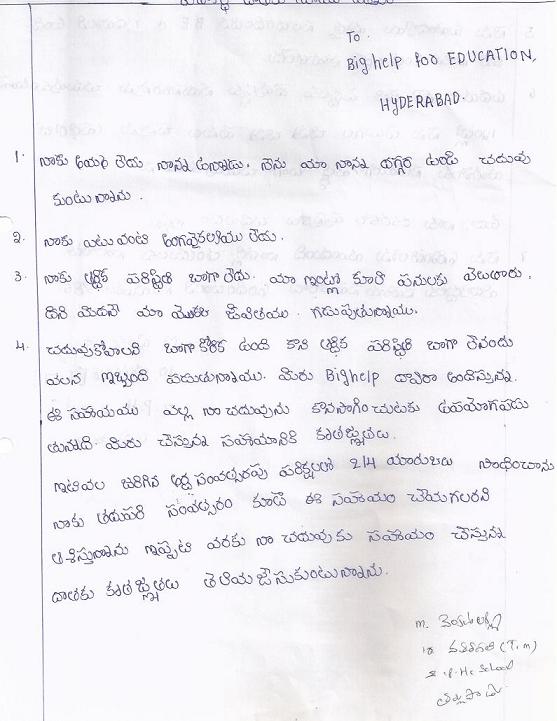 To
Big help for EDUCATION,
HYDERABAD.
1. నాకు అమ్మ లేదు నాన్న ఉన్నాడు. నేను మా నాన్న దగ్గర ఉండి చదువు
కుంటున్నాను.
2. నాకు ఎటువంటి అంగవైకల్యము లేదు.
3. నాకు ఆర్థిక పరిస్థితి బాగా లేదు. మా ఇంట్లో కూలి పనులకు వెలుతారు.
దాని మీదనే మా యొక్క జీవితము. గడుపుతున్నాము.
4. చదువుకోవాలని బాగా కోరిక ఉంది కాని ఆర్థిక పరిస్థితి బాగా లేనందు
వలన ఇబ్బంది పడుతున్నాము. మీరు Bighelp ద్వారా అందిస్తున్న
ఈ సహాయము వల్ల నా చదువును కొనసాగించుటకు ఉపయోగపడు
తున్నది. మీరు చేస్తున్న సహాయానికి కృతజ్ఞతలు.
ఇటీవల జరిగిన అర్ధ సంవత్సరపు పరీక్షలలో 214 మారుకులు సాధించాను
నాకు తదుపరి సంవత్సరం కూడా ఈ సహాయం చేయగలరని
ఆశిస్తున్నాను ఇప్పటి వరకు నా చదువుకు సహాయం చేస్తున్న
దాతకు కృతజ్ఞతలు తెలియజేసుకుంటున్నాను.
M.
10 తరగతి (T.M)
Z.P.H.S School